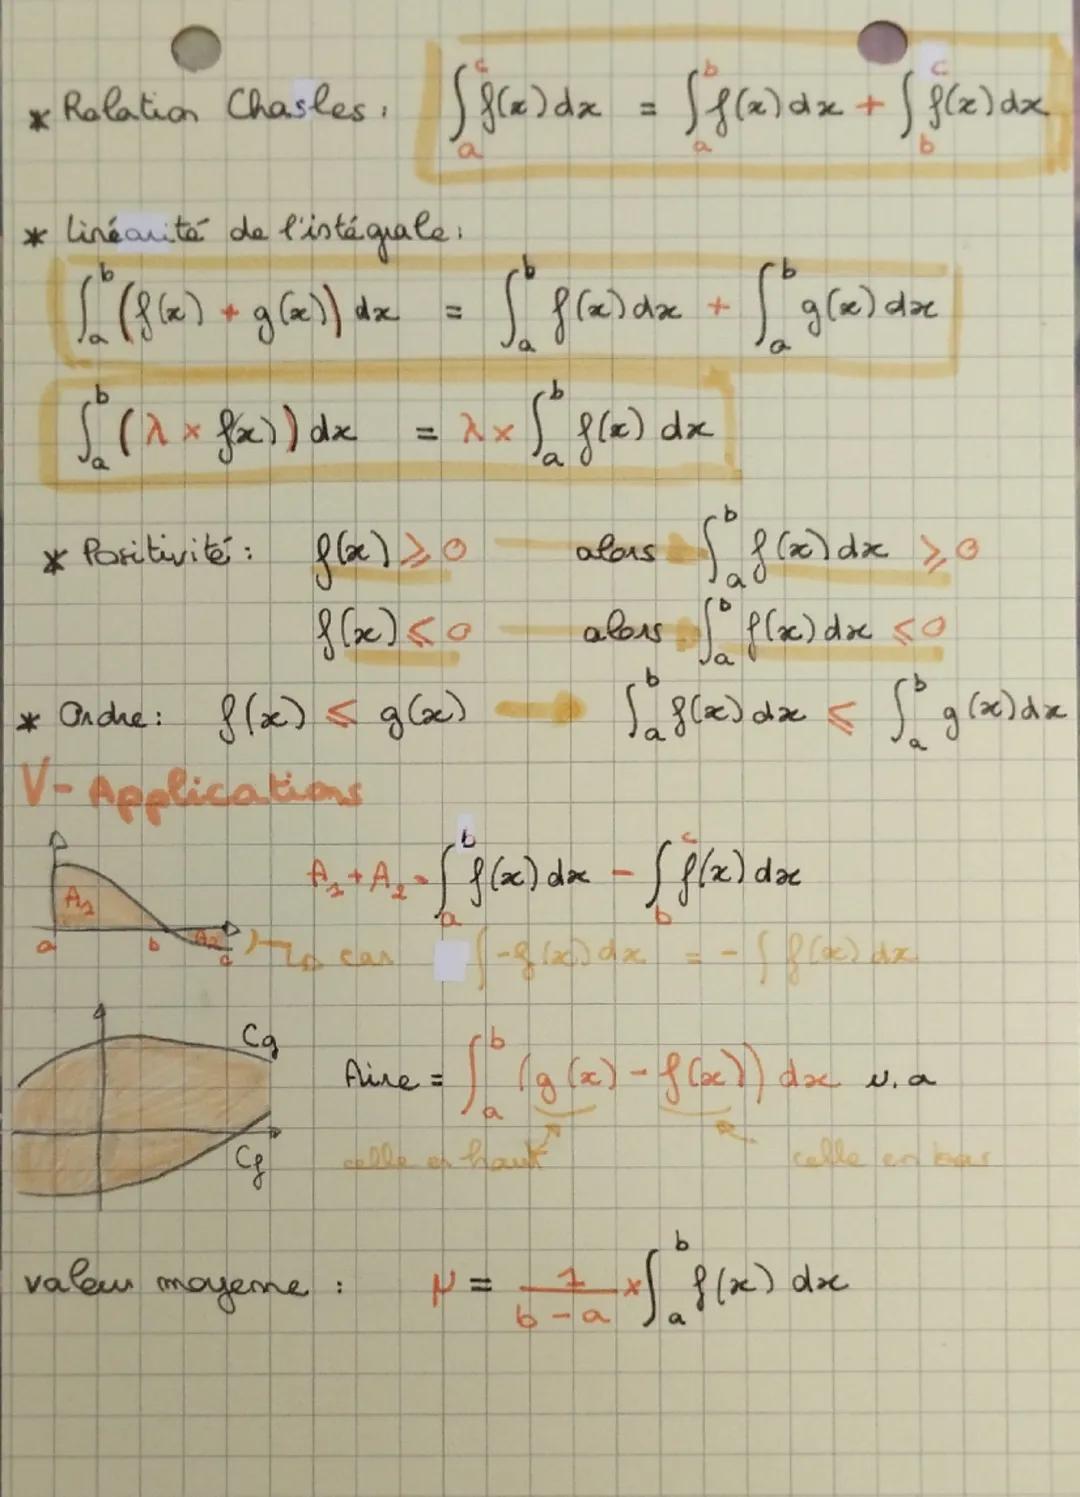 * Relation Chasles : ∫ₐᶜ f(x) dx = ∫ₐᵇ f(x) dx + ∫_b^c f(x) dx
* Linéarité de l'intégrale :
∫ₐᵇ (f(x) + g(x)) dx = ∫ₐᵇ f(x) dx + ∫ₐᵇ g(x) dx
∫ₐᵇ (λ × f(x)) dx = λ × ∫ₐᵇ f(x) dx
* Positivité : f(x) ⩾ 0 alors ∫ₐᵇ f(x) dx ⩾ 0
f(x) ⩽ 0 alors ∫ₐᵇ f(x) dx ⩽ 0
* Ordre : f(x) ⩽ g(x) → ∫ₐᵇ f(x) dx ⩽ ∫ₐᵇ g(x) dx
V- Applications
A₁ + A₂ = ∫ₐᵇ f(x) dx - ∫_b^c f(x) dx
A₁ A₂ a b c
↳ car ∫ -f(x) dx = - ∫ f(x) dx
Cg
Aire = ∫ₐᵇ (g(x) - f(x)) dx u.a
Cf
celle en haut celle en bas
valeur moyenne : μ = 1/(b - a) × ∫ₐᵇ f(x) dx